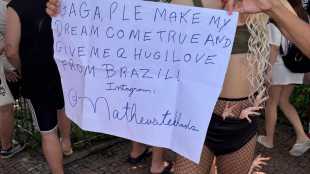 GAGA, PLE MAKE MY
DREAM COME TRUE AND
GIVE ME A HUG I LOVE
FROM BRAZIL!
Instagram: